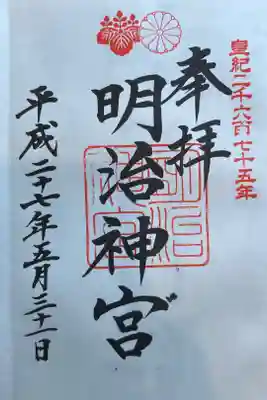 皇紀二千六百七十五年
奉拝
明治神宮
平成二十七年五月三十一日